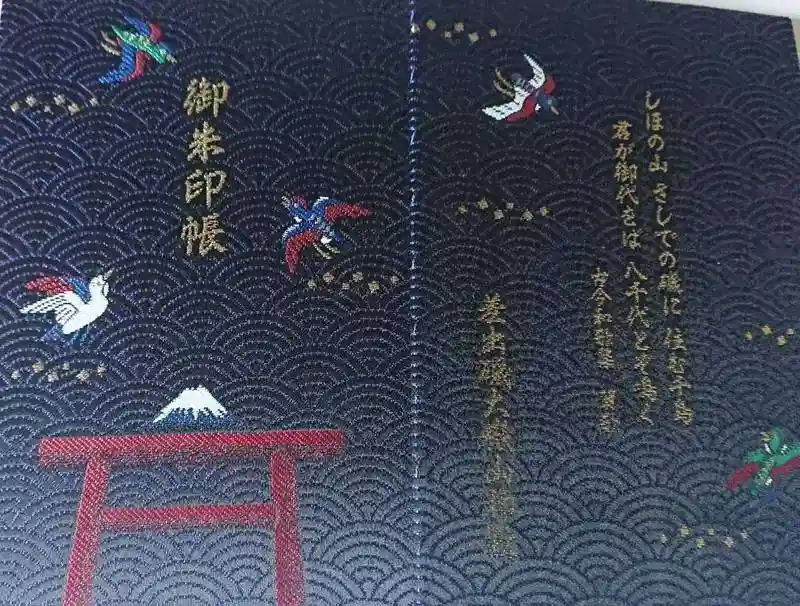 しほの山 さしでの磯に 住む千鳥
君が御代をば 八千代とぞ鳴く
古今和歌集
差出磯大嶽山神社
御朱印帳